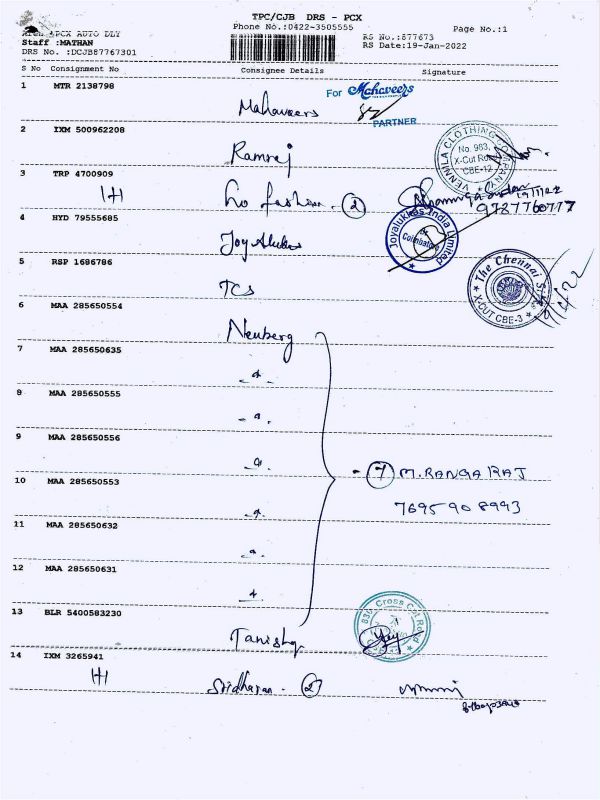 TPC/CJB DRS - PCX
Phone No.:0422-3505555
Page No.:1
PCX AUTO DLY
Staff :MATHAN
DRS No. :DCJB87767301
RS No.:877673
RS Date:19-Jan-2022
S No Consignment No Consignee Details Signature
1 MTR 2138798 Mahaveers
For Mahaveers
PARTNER
2 IXM 500962208 Ramraj
VENMILA CLOTHING COMPANY
No. 983,
X-Cut Road
CBE-12
3 TRP 4700909 fashion (2)
9787760777
4 HYD 79555685 Joy Alukas
Joyalukkas India Limited
Coimbatore
5 RSP 1686786 TCS
The Chennai
X-CUT CBE-3
6 MAA 285650554 Neuberg
7 MAA 285650635
8 MAA 285650555
9 MAA 285650556
10 MAA 285650553
(7) M.RANGA RAJ
7695908993
11 MAA 285650632
12 MAA 285650631
13 BLR 5400583230 Tanishq
Cross Cut Road
14 IXM 3265941 Sridharan. (2)